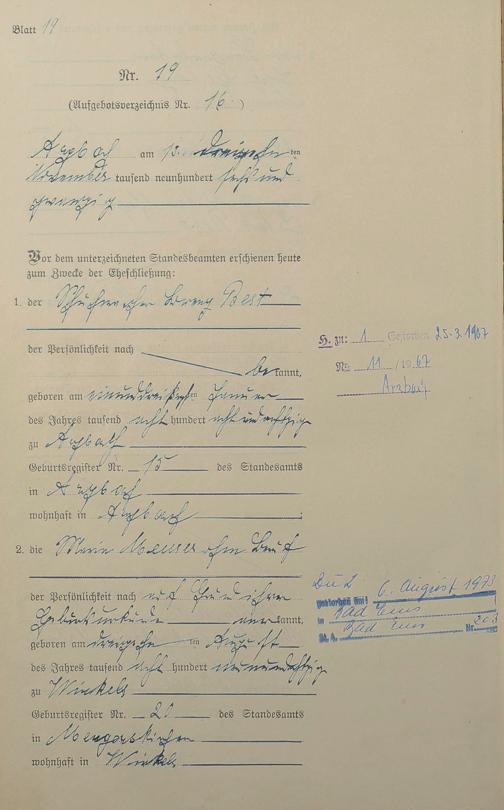 Blatt 19
Nr. 19
(Aufgebotsverzeichnis Nr. 16)
Arzbach am 13. dreizehnten
November tausend neunhundert sechs und
zwanzig
Vor dem unterzeichneten Standesbeamten erschienen heute
zum Zwecke der Eheschließung:
1. der Schuhmacher Lorenz Best
der Persönlichkeit nach
bekannt,
geboren am einunddreißigsten Januar
des Jahres tausend acht hundert acht und achtzig
zu Arzbach
Geburtsregister Nr. 15 des Standesamts
in Arzbach
wohnhaft in Arzbach ;
2. die Maria Meurer ohne Beruf
der Persönlichkeit nach auf Grund ihrer
Geburtsurkunde anerkannt,
geboren am dreizehnten August
des Jahres tausend acht hundert neunundachtzig
zu Winkels
Geburtsregister Nr. 20 des Standesamts
in Mengerskirchen
wohnhaft in Winkels
H. zu: 1 Gestorben 25.3.1967
Nr. 11 / 1967
Arzbach
Zu 2
gestorben am: 6. August 1973
in Bad Ems
St. A. Bad Ems Nr. 203